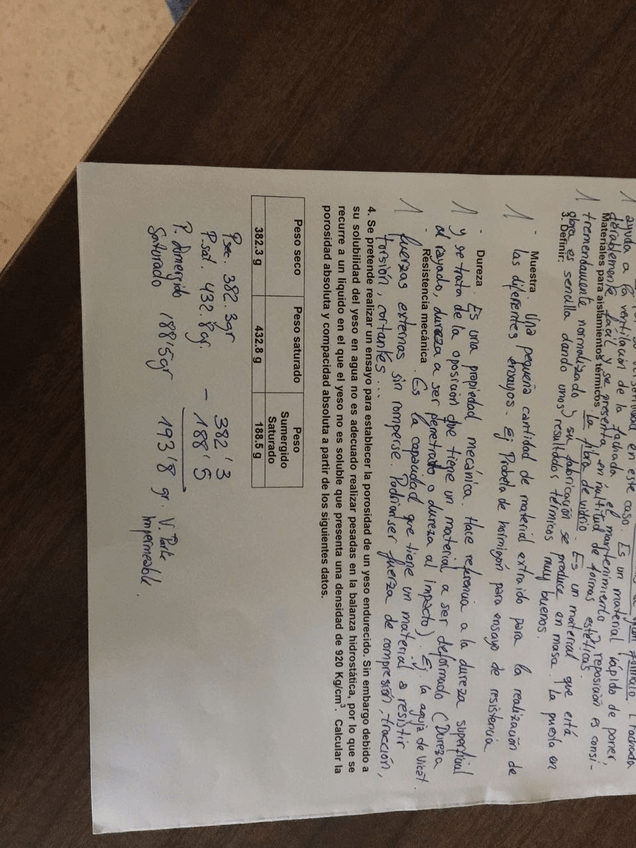 ayuda a la ventilación de la fachada. el mantenimiento y reposición es consi-
derablemente fácil y se presenta en multitud de formas estéticas.
Materiales para aislamientos térmicos La fibra de vidrio. Es un material que está
1 tremendamente normalizado, su fabricación se produce en masa y la puesta en
obra es sencilla dando unos resultados térmicos muy buenos.
3. Definir:
1 - Muestra. Una pequeña cantidad de material extraido para la realización de
las diferentes ensayos. Ej Probeta de hormigón para ensayo de resistencia
- Dureza Es una propiedad mecánica. Hace referencia a la dureza superficial
1 y se trata de la oposición que tiene un material a ser deformado (Dureza
al rayado, dureza a ser penetrado o dureza al impacto) Ej la aguja de Vicat.
- Resistencia mecánica. Es la capacidad que tiene un material a resistir
1 fuerzas externas sin romperse. Podrian ser fuerza de compresión, tracción,
torsión, cortantes...
4. Se pretende realizar un ensayo para establecer la porosidad de un yeso endurecido. Sin embargo debido a
su solubilidad del yeso en agua no es adecuado realizar pesadas en la balanza hidrostática, por lo que se
recurre a un líquido en el que el yeso no es soluble que presenta una densidad de 920 Kg/cm³. Calcular la
porosidad absoluta y compacidad absoluta a partir de los siguientes datos.
Peso seco Peso saturado Peso Sumergido Saturado
382.3 g 432.8 g 188.5 g
P sec. 382.3gr
P. sat. 432.8g.
P. Sumergido 188'5gr
Saturado
382'3
- 188'5
193'8 g. V. Parte
Impermeable.